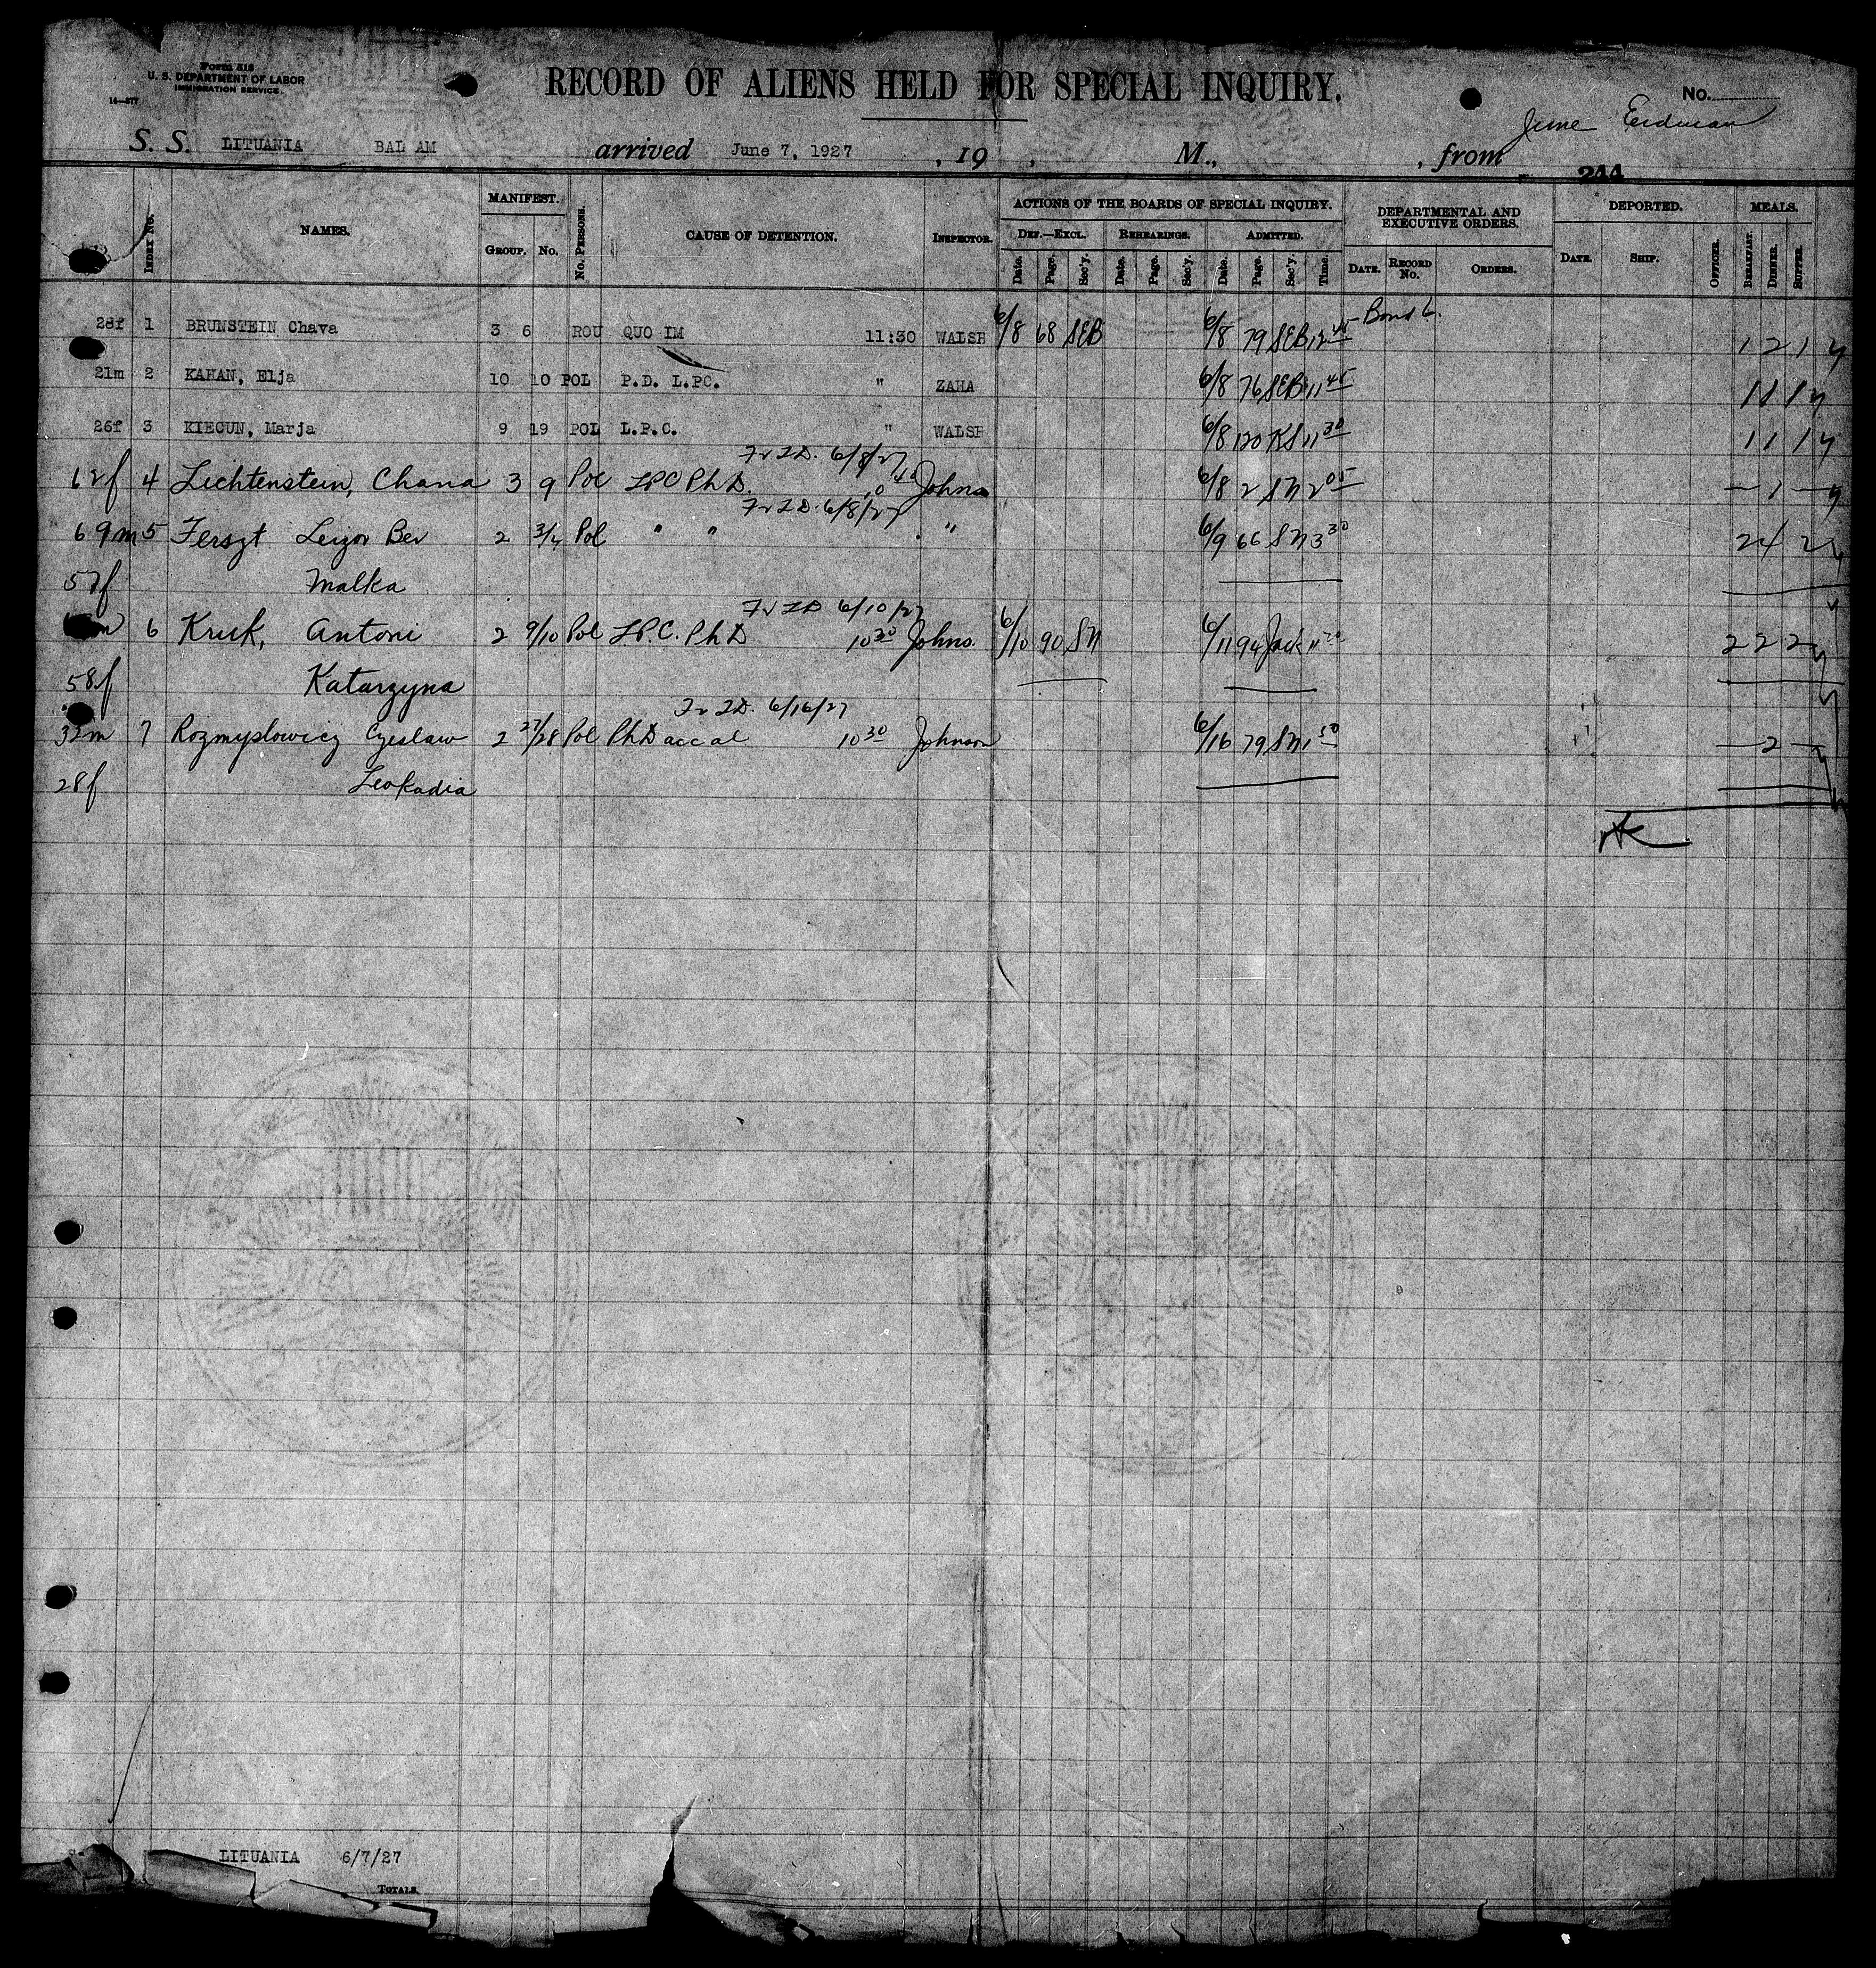 Form 518
U. S. DEPARTMENT OF LABOR
IMMIGRATION SERVICE
14—377
RECORD OF ALIENS HELD FOR SPECIAL INQUIRY.
No.
S. S. LITUANIA BAL AM arrived June 7, 1927, 19 , M., , from
244
INDEX No. NAMES. MANIFEST. GROUP. No. No. PERSONS. CAUSE OF DETENTION. INSPECTOR. ACTIONS OF THE BOARDS OF SPECIAL INQUIRY. DEF.—EXCL. Date. Page. Sec'y. REHEARINGS. Date. Page. Sec'y. ADMITTED. Date. Page. Sec'y. Time. DEPARTMENTAL AND EXECUTIVE ORDERS. DATE. RECORD No. ORDERS. DEPORTED. DATE. SHIP. OFFICER. MEALS. BREAKFAST. DINNER. SUPPER.
28f 1 BRUNSTEIN Chava 3 6 ROU QUO IM 11:30 WALSH 6/8 68 SEB 6/8 79 SEB 12 45 Bond 6. 1 2 1
21m 2 KAHAN, Elja 10 10 POL P.D. L.PC. " ZAHA 6/8 76 SEB 11 45 1 1 1
26f 3 KIECUN, Marja 9 19 POL L.P.C. " WALSH 6/8 120 KS 11 30 1 1 1
Fr I.D. 6/8/27
62f 4 Lichtenstein, Chana 3 9 Pol LPC Ph D. 10 40 Johns 6/8 2 SN 2 05 — 1 —
Fr I.D. 6/8/27
69m 5 Ferszt Leizor Ber 2 3/4 Pol " " " 6/9 66 SN 3 30 2 4 2
57f Malka
Fr ID 6/10/27
6 Kruk, Antoni 2 9/10 Pol L.P.C. Ph D 10 30 Johns. 6/10 90 SN 6/11 94 Jack 11 2 2 2
58f Katarzyna
Fr I.D. 6/16/27
32m 7 Rozmyslowicz Czeslaw 2 27/28 Pol Ph D acc al 10 30 Johnson 6/16 79 SN 1 50 — 2 —
28f Leokadia
LITUANIA 6/7/27
TOTALS